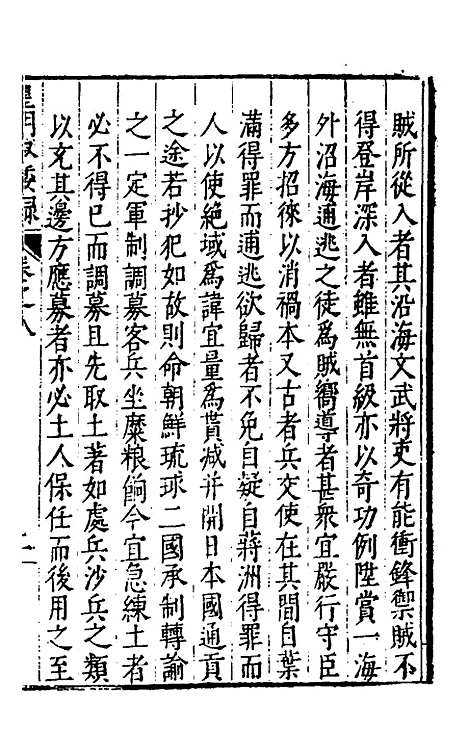 賊所從入者其沿海文武將吏有能衝鋒禦賊不
得登岸深入者雖無首級亦以奇功例陞賞一海
外沿海逋逃之徒爲賊嚮導者甚衆宜嚴行守臣
多方招徠以消禍本又古者兵交使在其間自葉
滿得罪而逋逃欲歸者不免自疑自蔣洲得罪而
人以使絶域爲諱宜量爲貰減幷開日本國通貢
之途若抄犯如故則命朝鮮琉球二國承制轉諭
之一定軍制調募客兵坐糜粮餉今宜急練土者
必不得已而調募且先取土著如處兵沙兵之類
以充其邊方應募者亦必土人保任而後用之至
皇明馭倭録 卷之八